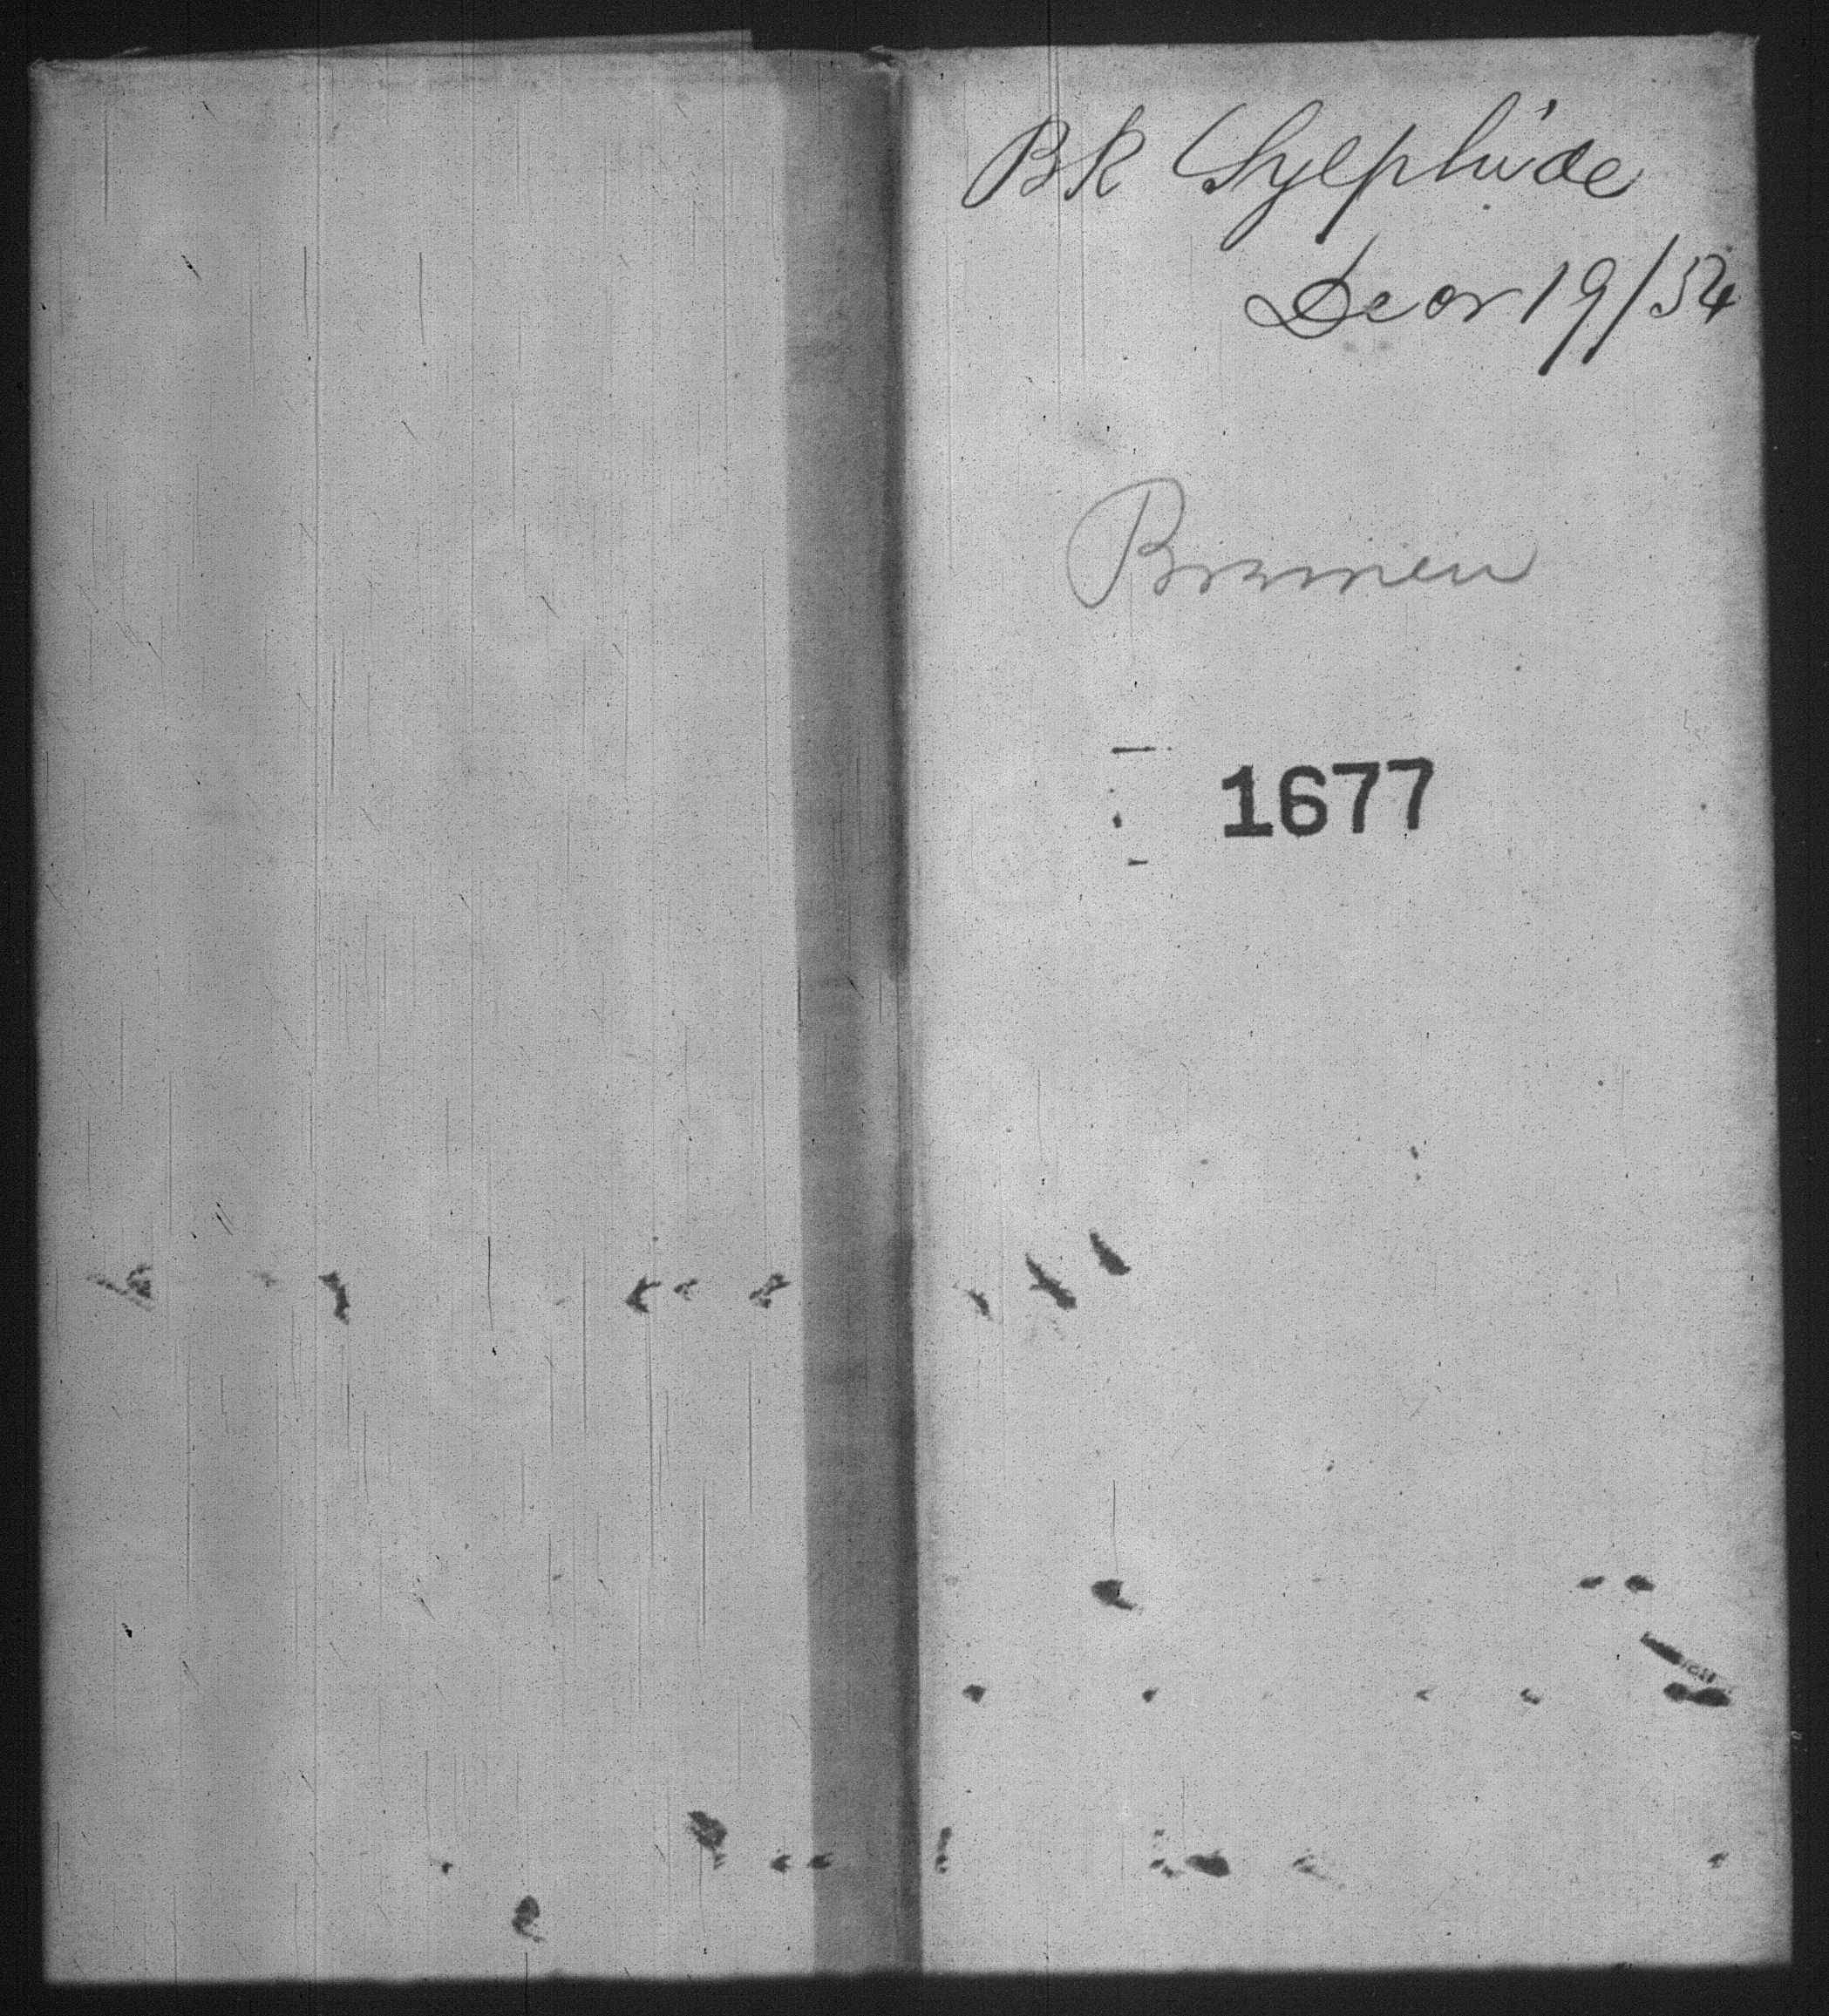 Bk Sylphide
Decr 19/54
Bremen
1677